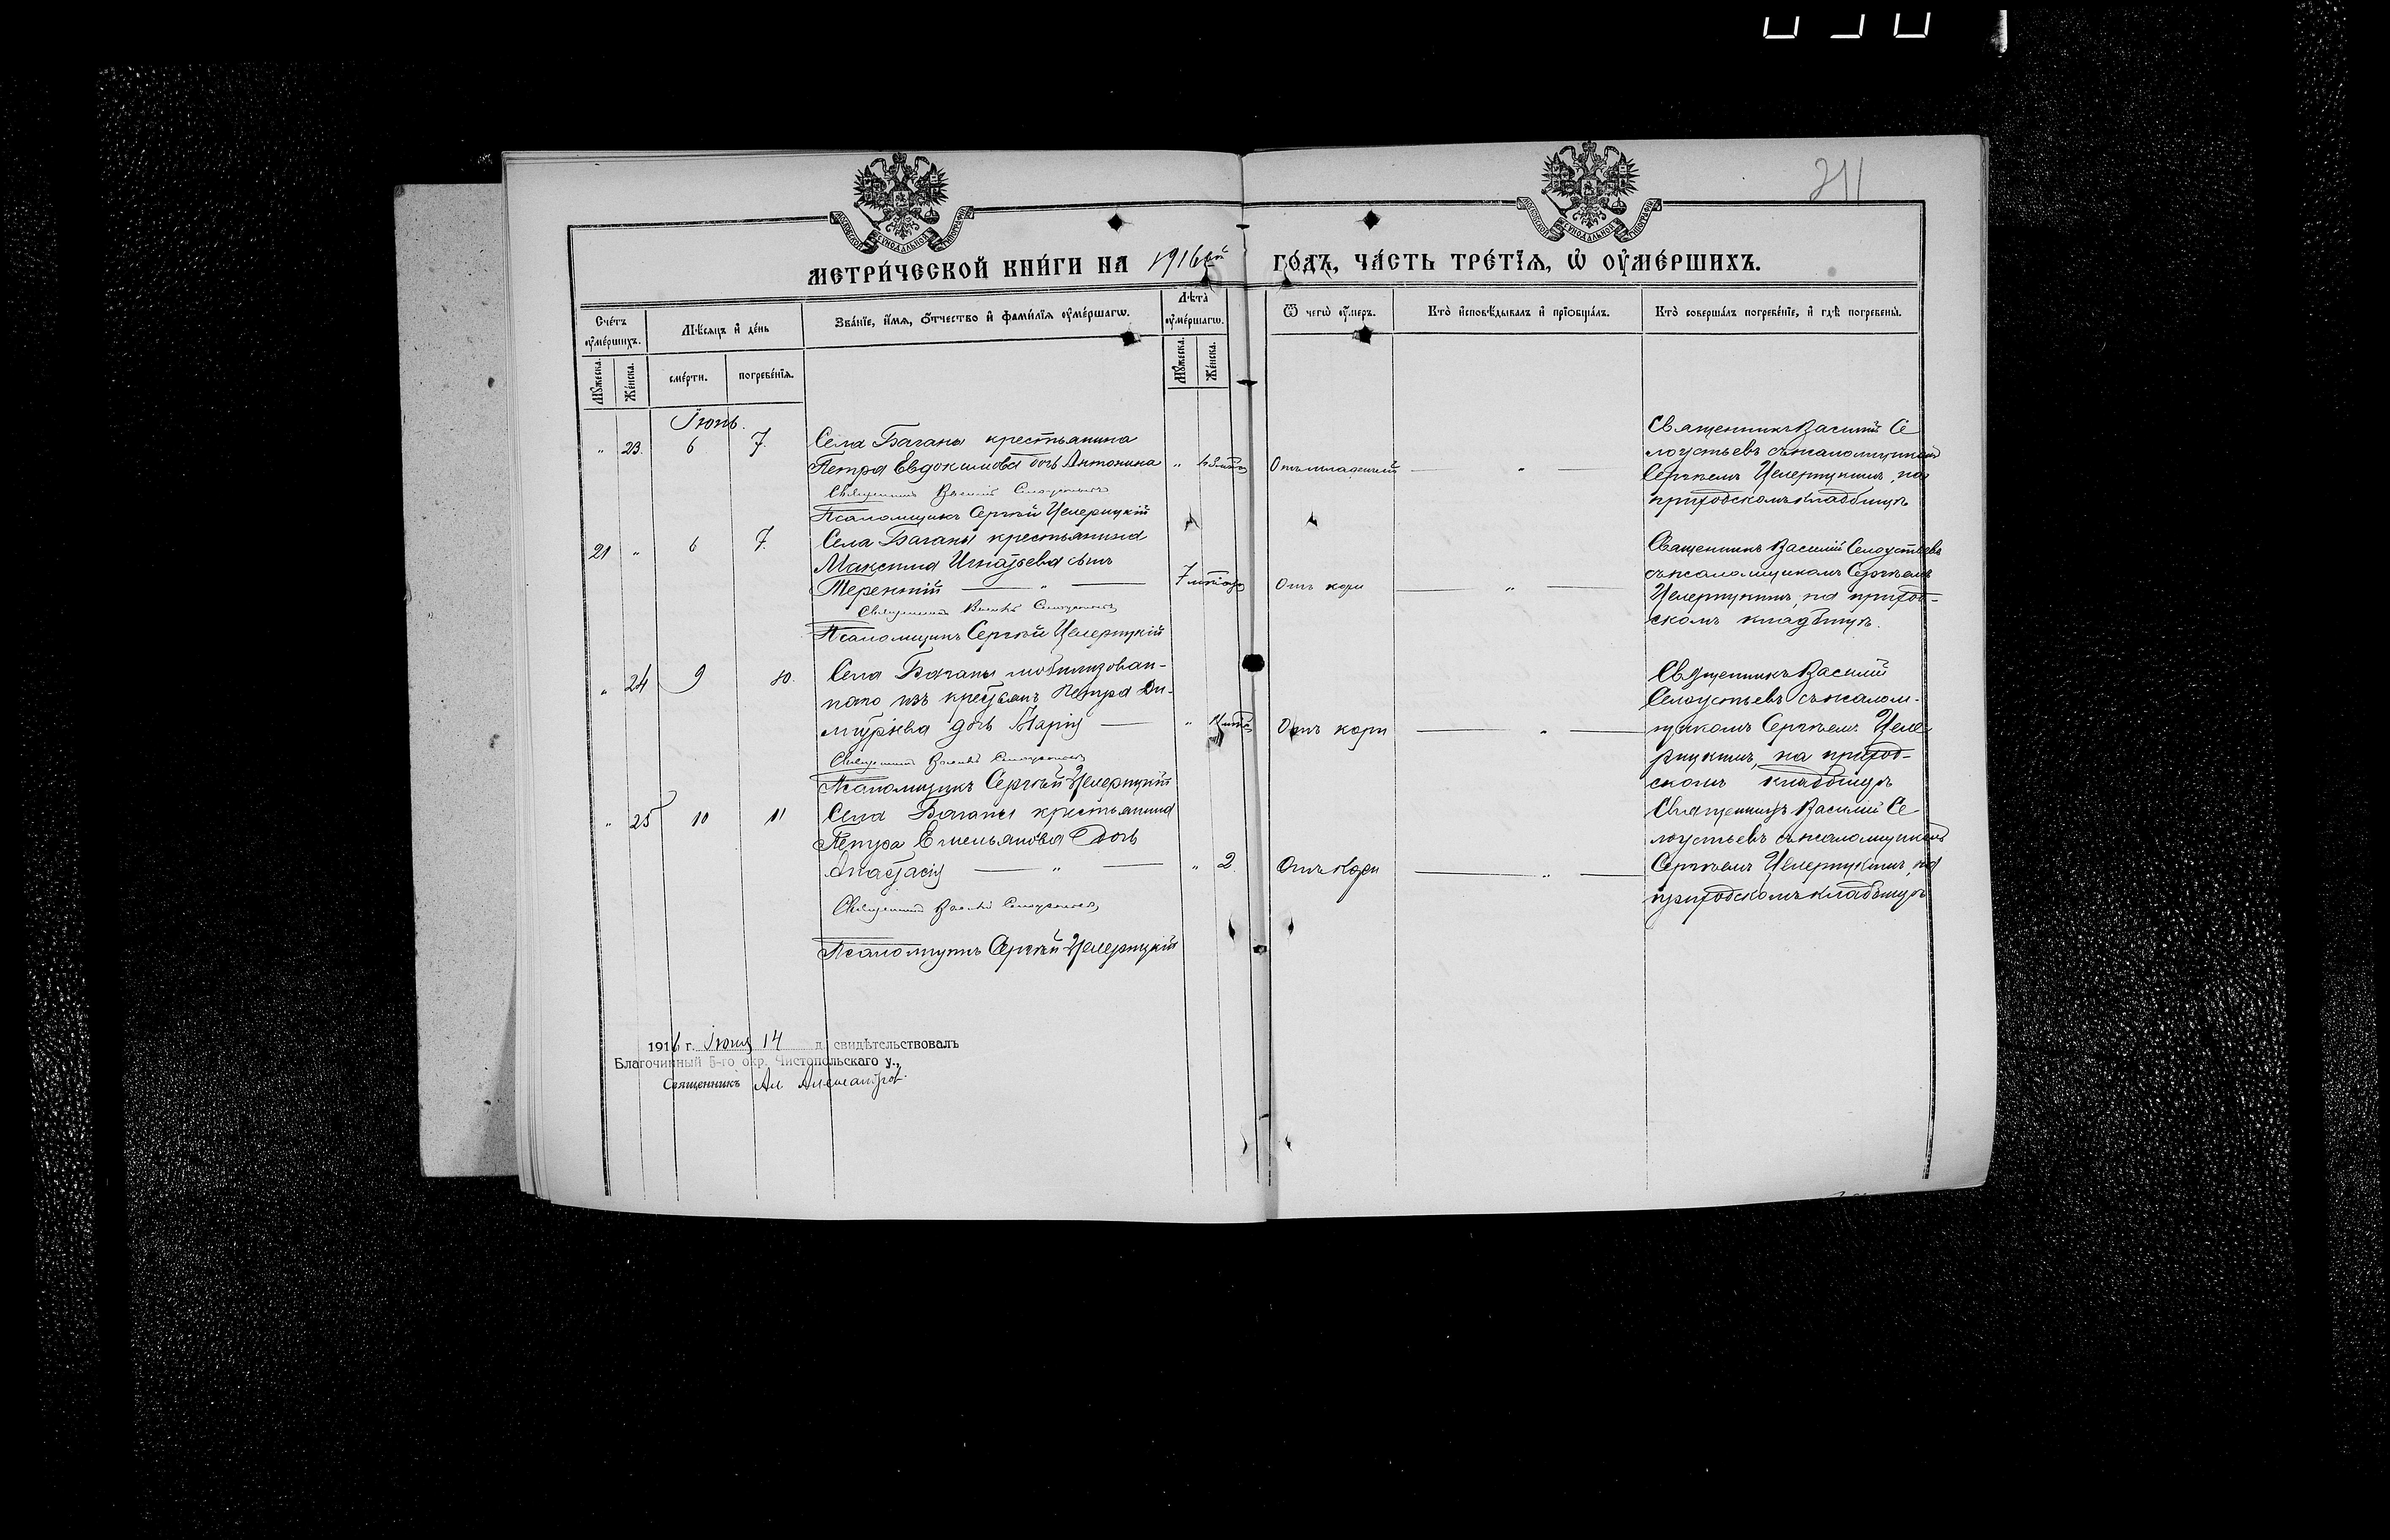 211
МЕТРИ́ЧЕСКОЙ КНИ́ГИ НА 1916ый ГО́ДЪ, ЧА́СТЬ ТРЕ́ТІѦ, Ѡ҆ ОУ҆МЕ́РШИХЪ.
Сче́тъ оу҆ме́ршихъ.
Мꙋ́жеска.
Же́нска.
Мѣ́сяцъ и҆ де́нь
сме́рти.
погребе́нїя.
Зва́нїе, и҆́мя, ѻ҆́тчество и҆ фами́лїя оу҆ме́ршагѡ.
Лѣ́та оу҆ме́ршагѡ.
Мꙋ́жеска.
Же́нска.
Ѿ чегѡ̀ оу҆́меръ.
Кто̀ и҆сповѣ́дывалъ и҆ прїѡбща́лъ.
Кто̀ соверша́лъ погребе́нїе, и҆ гдѣ̀ погребены̀.
Іюнь.
" 23. 6 7.
Села Баганы крестьянина
Петра Евдокимова дочь Антонина
Священникъ Василій Селоустьевъ
Псаломщикъ Сергѣй
"
Отъ младенческ
"
Священникъ Василій Се
лоустьевъ съ псаломщикомъ
Сергѣемъ на
приходскомъ кладбищѣ
21 " 6 7.
Села Баганы крестьянина
Максима Игнатьева сынъ
Терентій "
Священникъ Василій Селоустьевъ
Псаломщикъ Сергѣй
7
Отъ кори
"
Священникъ Василій Селоустьевъ
съ псаломщикомъ Сергѣемъ
на приход-
скомъ кладбищѣ.
" 24 9 10.
Села Баганы мобилизован-
наго изъ крестьянъ Петра Ди-
митріева дочь Марія
Священникъ Василій Селоустьевъ
Псаломщикъ Сергѣй
"
Отъ кори
"
Священникъ Василій
Селоустьевъ съ псалом-
щикомъ Сергѣемъ
на приход-
скомъ кладбищѣ
" 25 10 11
Села Баганы крестьянина
Петра Емельянова дочь
Анастасія "
Священникъ Василій Селоустьевъ
Псаломщикъ Сергѣй
" 2.
Отъ кори
"
Священникъ Василій Се
лоустьевъ съ псаломщикомъ
Сергѣемъ на
приходскомъ кладбищѣ
1916 г. Іюня 14 д. свидѣтельствовалъ
Благочинный 5-го окр. Чистопольскаго у.,
Священникъ Ал Александров